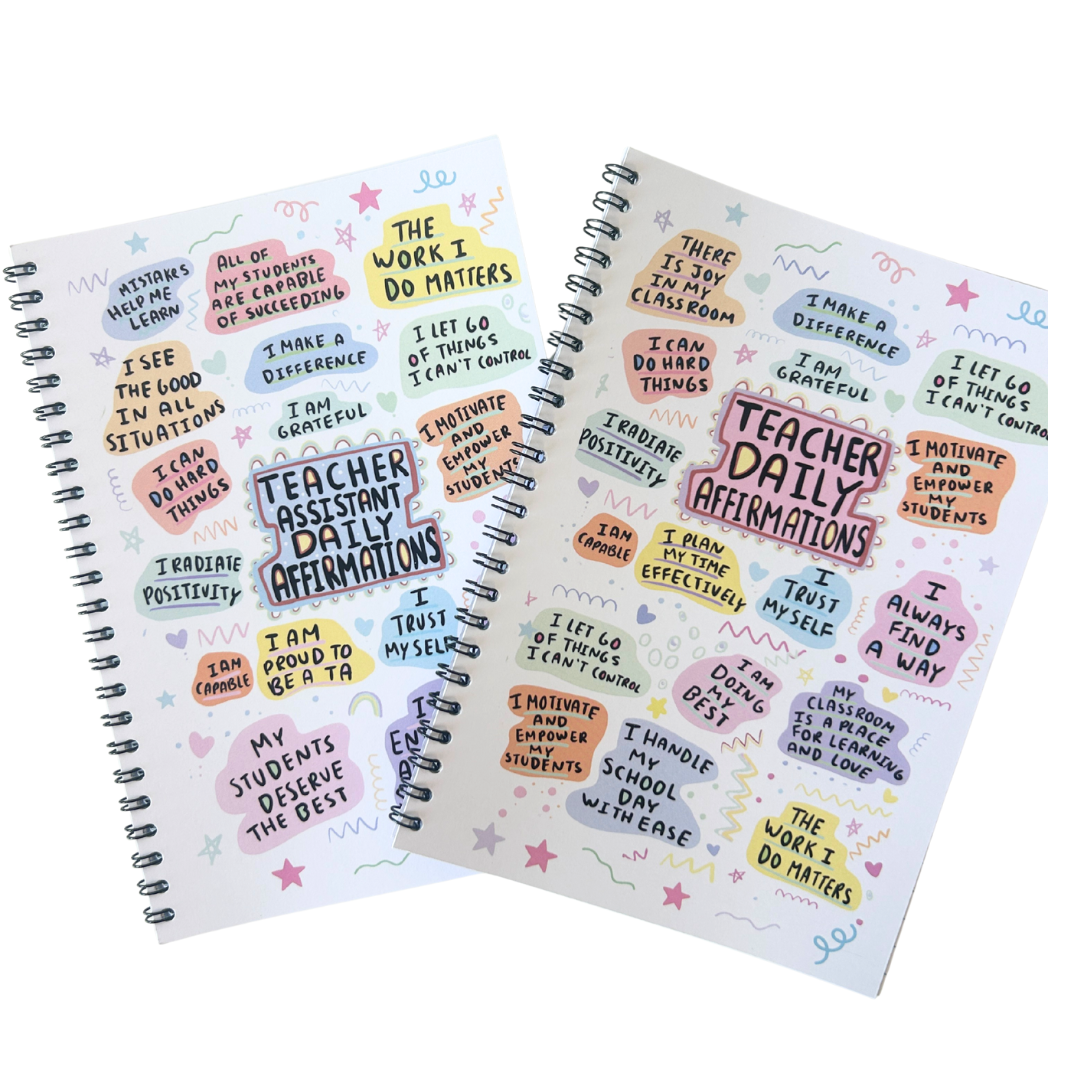 MISTAKES
HELP ME
LEARN
ALL OF
MY STUDENTS
ARE CAPABLE
OF SUCCEEDING
THE
WORK I
DO MATTERS
I SEE
THE GOOD
IN ALL
SITUATIONS
I MAKE A
DIFFERENCE
I LET GO
OF THINGS
I CAN'T CONTROL
I AM
GRATEFUL
I MOTIVATE
AND
EMPOWER
MY
STUDENTS
I CAN
DO HARD
THINGS
TEACHER
ASSISTANT
DAILY
AFFIRMATIONS
I RADIATE
POSITIVITY
I
TRUST
MYSELF
I AM
CAPABLE
I AM
PROUD TO
BE A TA
MY
STUDENTS
DESERVE
THE BEST
I
THERE
IS JOY
IN MY
CLASSROOM
I MAKE A
DIFFERENCE
I CAN
DO HARD
THINGS
I AM
GRATEFUL
I LET GO
OF THINGS
I CAN'T CONTROL
I RADIATE
POSITIVITY
TEACHER
DAILY
AFFIRMATIONS
I MOTIVATE
AND
EMPOWER
MY
STUDENTS
I AM
CAPABLE
I PLAN
MY TIME
EFFECTIVELY
I
TRUST
MYSELF
I
ALWAYS
FIND
A WAY
I LET GO
OF THINGS
I CAN'T CONTROL
I AM
DOING
MY
BEST
MY
CLASSROOM
IS A PLACE
FOR LEARNING
AND LOVE
I MOTIVATE
AND
EMPOWER
MY
STUDENTS
I HANDLE
MY
SCHOOL
DAY
WITH EASE
THE
WORK I
DO MATTERS